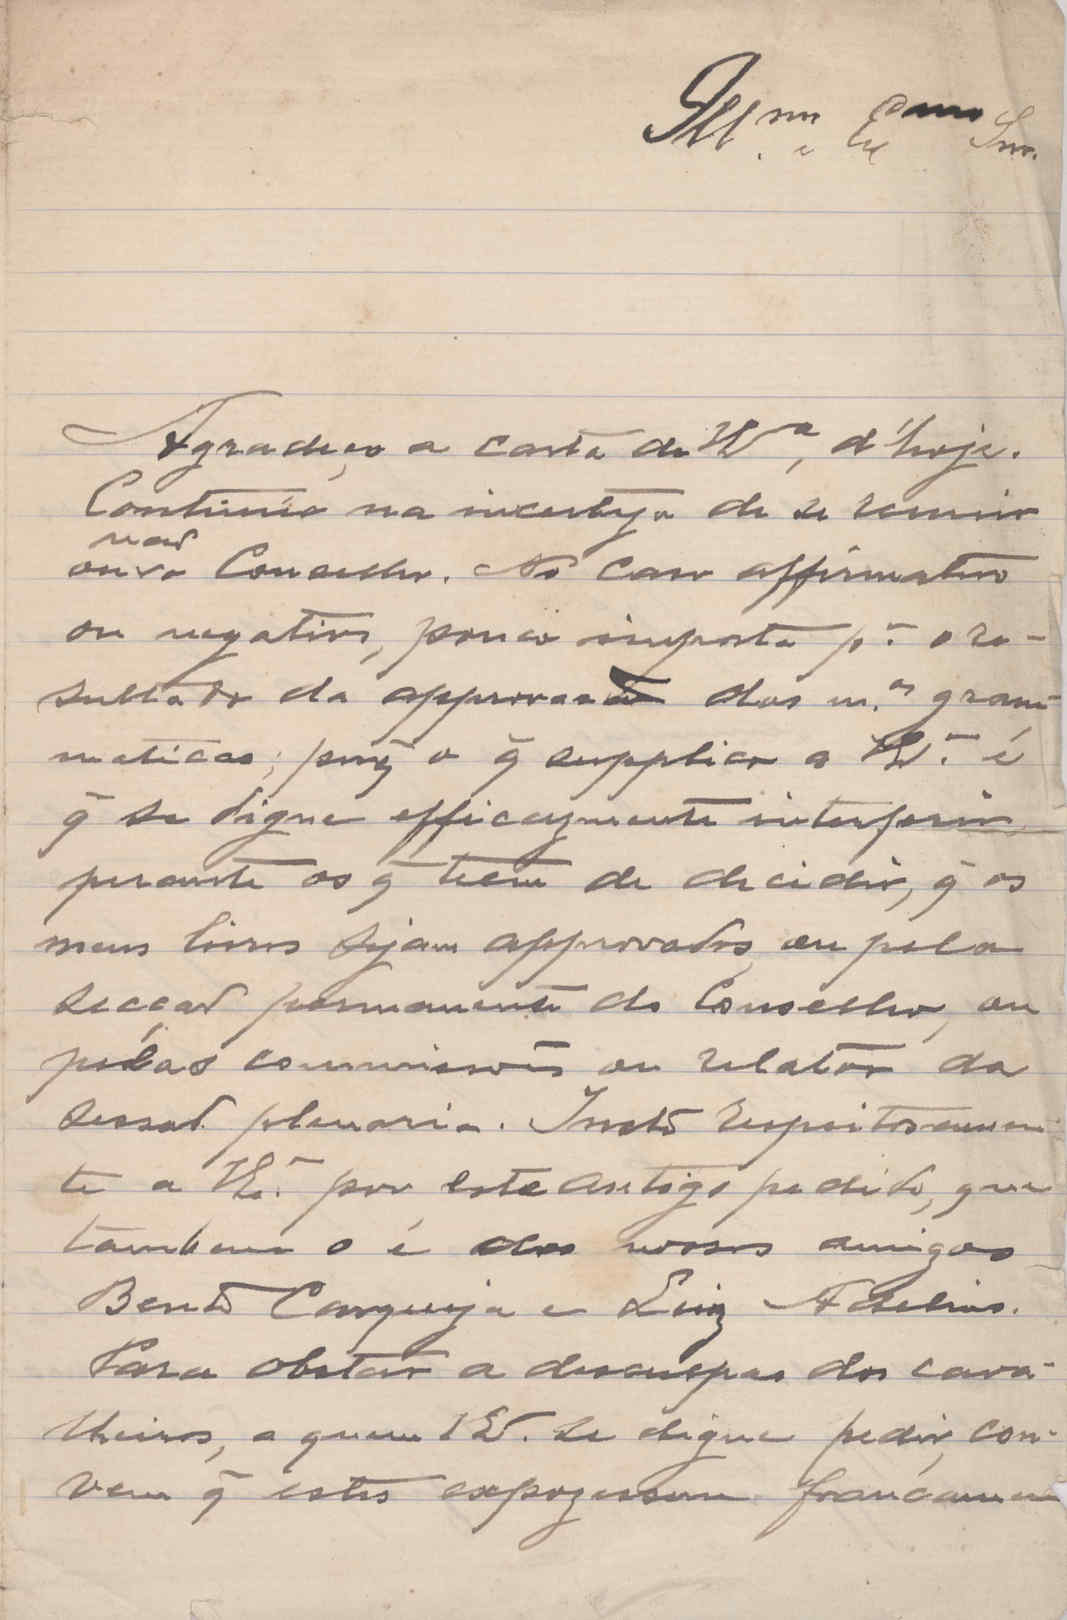 Ill.mo e Ex.mo Snr.
Agradeço a carta de V. Ex.a, d'hoje.
Continúo na incerteza de se reunir
não
ou o Conselho. No caso affirmativo
ou negativo, pouco importa p.a o re-
sultado da approvação das m.as gram-
maticas; porq̃ o q̃ supplico a V. Ex.a é
q̃ se digne efficazmente interferir
perante os q̃ teem de decidir, q̃ os
meus livros sejam approvados, ou pela
secção permanente do Conselho, ou
pelas commissões ou relator da
sessão plenaria. Insto respeitosamen-
te a V. Ex.a por este antigo pedido, que
tambem o é dos nossos amigos
Bento Carqueja e Luiz
Para obstar a desculpas dos cava-
lheiros, a quem V. Ex. se digne pedir, con-
vem q̃ estes expozessem francamen